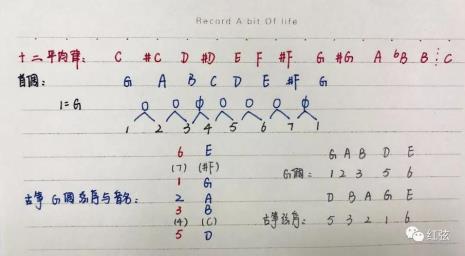 Record A bit Of life
十二平均律: C #C D #D E F #F G #G A bB B C
首调: G A B C D E #F G
1=G
1 2 3 4 5 6 7 1
6 E
(7) (#F)
1 G
2 A
3 B
(4) (C)
5 D
古筝 G调 弦序与音名:
G A B D E
G调: 1 2 3 5 6
D B A G E
古筝弦序: 5 3 2 1 6
红弦